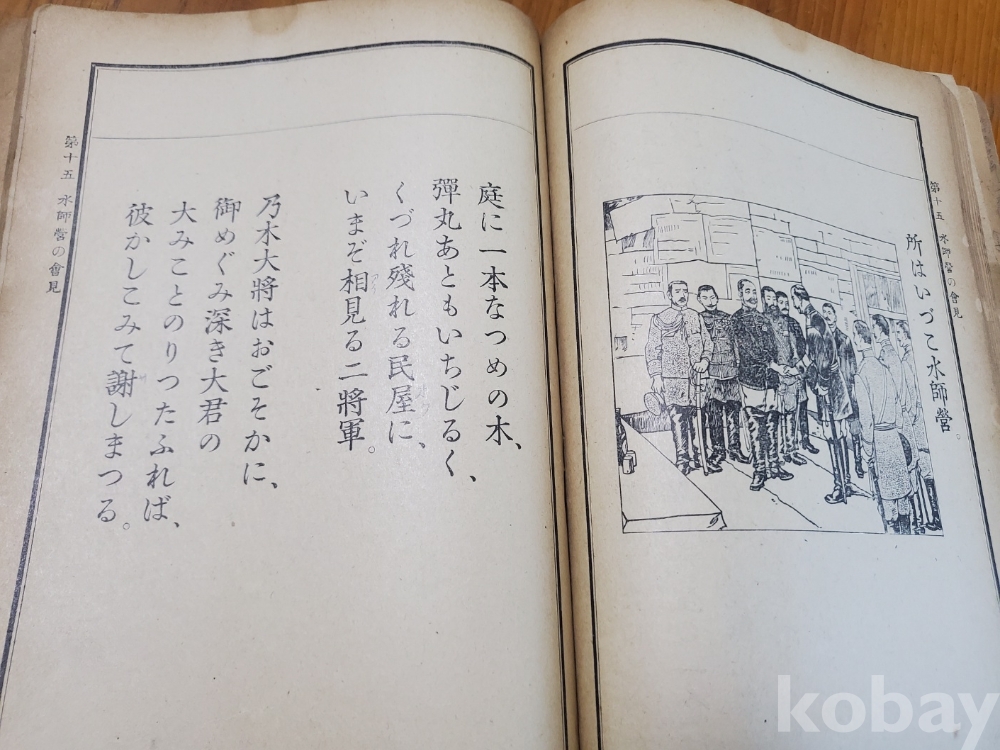 第十五 水師營の會見
所はいづこ水師營。
庭に一本なつめの木、
彈丸あともいちじるく、
くづれ殘れる民屋に、
いまぞ相見る二將軍。
乃木大將はおごそかに、
御めぐみ深き大君の
大みことのりつたふれば、
彼かしこみて謝しまつる。
第十五 水師營の會見
kobay